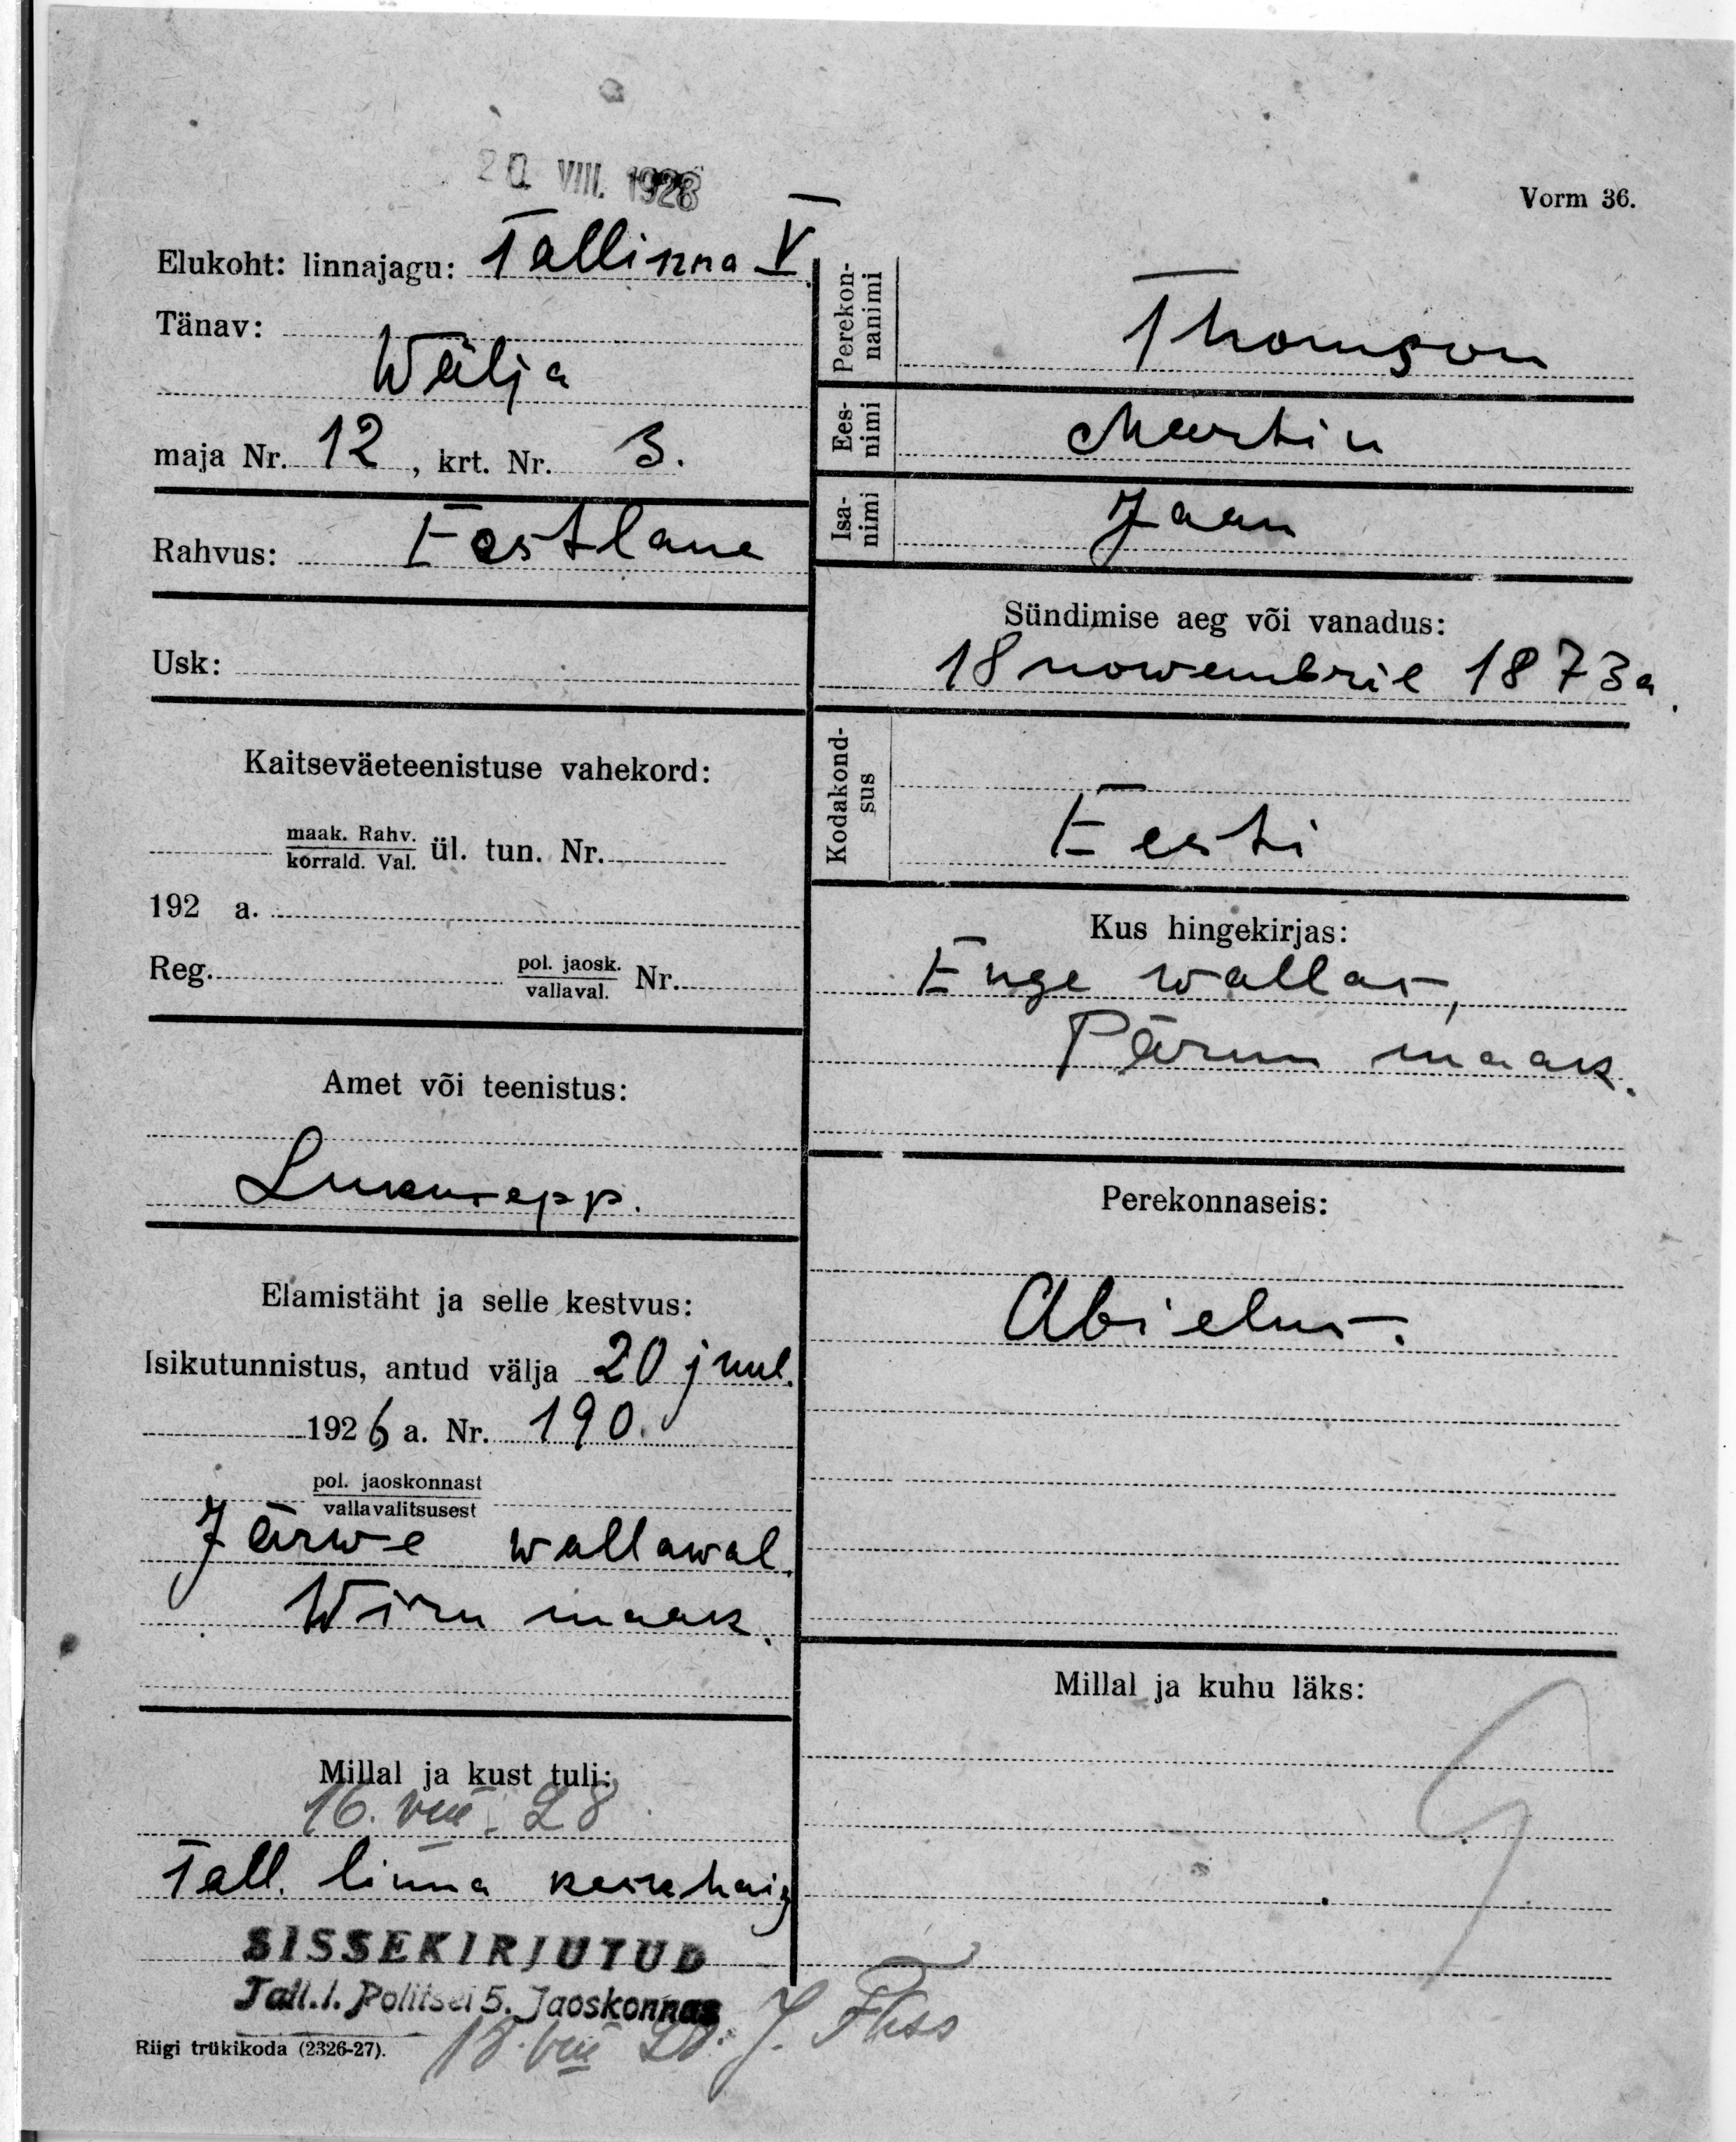 20. VIII. 1928
Vorm 36.
Elukoht: linnajagu: Tallinna V
Tänav:
Wälja
maja Nr. 12, krt. Nr. 3.
Rahvus: Eestlane
Usk:
Kaitseväeteenistuse vahekord:
maak. Rahv.
korrald. Val. ül. tun. Nr.
192 a.
Reg. pol. jaosk.
vallaval. Nr.
Amet või teenistus:
Lukusepp.
Elamistäht ja selle kestvus:
Isikutunnistus, antud välja 20 juul.
1926 a. Nr. 190.
pol. jaoskonnast
vallavalitsusest
Järwe wallawal.
Wiru maak.
Millal ja kust tuli:
16. VIII. 28
Tall. linna keskhaig
SISSEKIRJUTUD
Tall. l. Politsei 5. Jaoskonnas
18. VIII 28. J.
Riigi trükikoda (2326-27).
Perekon-
nanimi
Thomson
Ees-
nimi
Martin
Isa-
nimi
Jaan
Sündimise aeg või vanadus:
18 nowembril 1873 a.
Kodakond-
sus
Eesti
Kus hingekirjas:
Enge wallas,
Pärnu maak.
Perekonnaseis:
Abielus.
Millal ja kuhu läks: